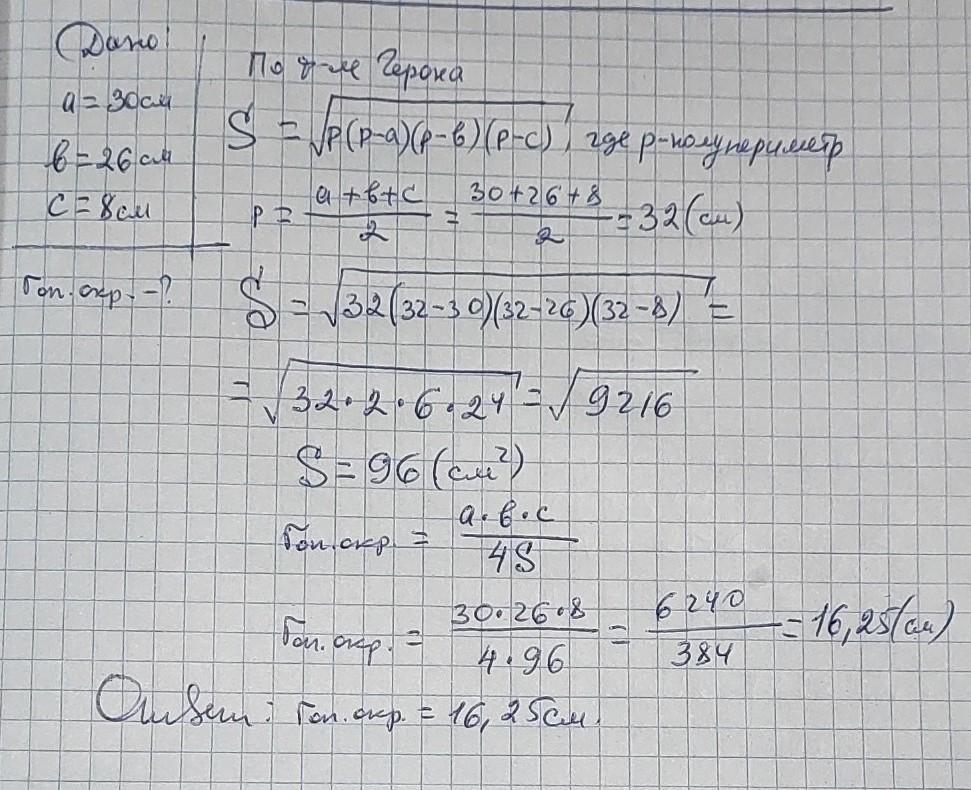 Дано:
a = 30см
в = 26см
c = 8см
rоп.окр. - ?
По т-ме Герона
S = √p(p-a)(p-в)(p-c), где p-полупериметр
p = a+в+c / 2 = 30+26+8 / 2 = 32(см)
S = √32(32-30)(32-26)(32-8) =
= √32·2·6·24 = √9216
S = 96 (см²)
rоп.окр. = a·в·c / 4S
rоп.окр. = 30·26·8 / 4·96 = 6240 / 384 = 16,25(см)
Ответ: rоп.окр. = 16,25см.